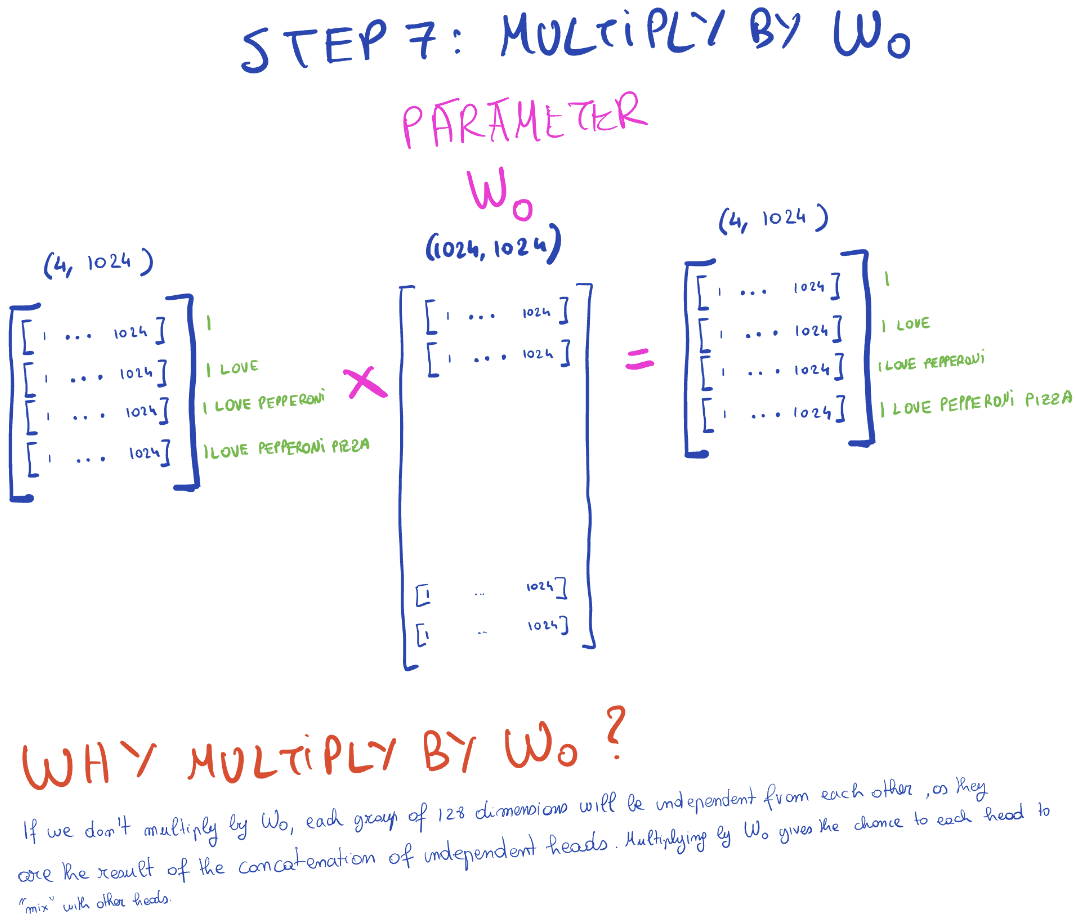 STEP 7: MULTIPLY BY Wo
PARAMETER
Wo
(4, 1024)
[1 ... 1024] I
[1 ... 1024] I LOVE
[1 ... 1024] I LOVE PEPPERONI
[1 ... 1024] I LOVE PEPPERONI PIZZA
×
(1024, 1024)
[1 ... 1024]
[1 ... 1024]
[1 .. 1024]
[1 .. 1024]
=
(4, 1024)
[1 ... 1024] I
[1 ... 1024] I LOVE
[1 ... 1024] I LOVE PEPPERONI
[1 ... 1024] I LOVE PEPPERONI PIZZA
WHY MULTIPLY BY Wo?
If we don't multiply by Wo, each group of 128 dimensions will be independent from each other, as they
are the result of the concatenation of independent heads. Multiplying by Wo gives the chance to each head to
"mix" with other heads.